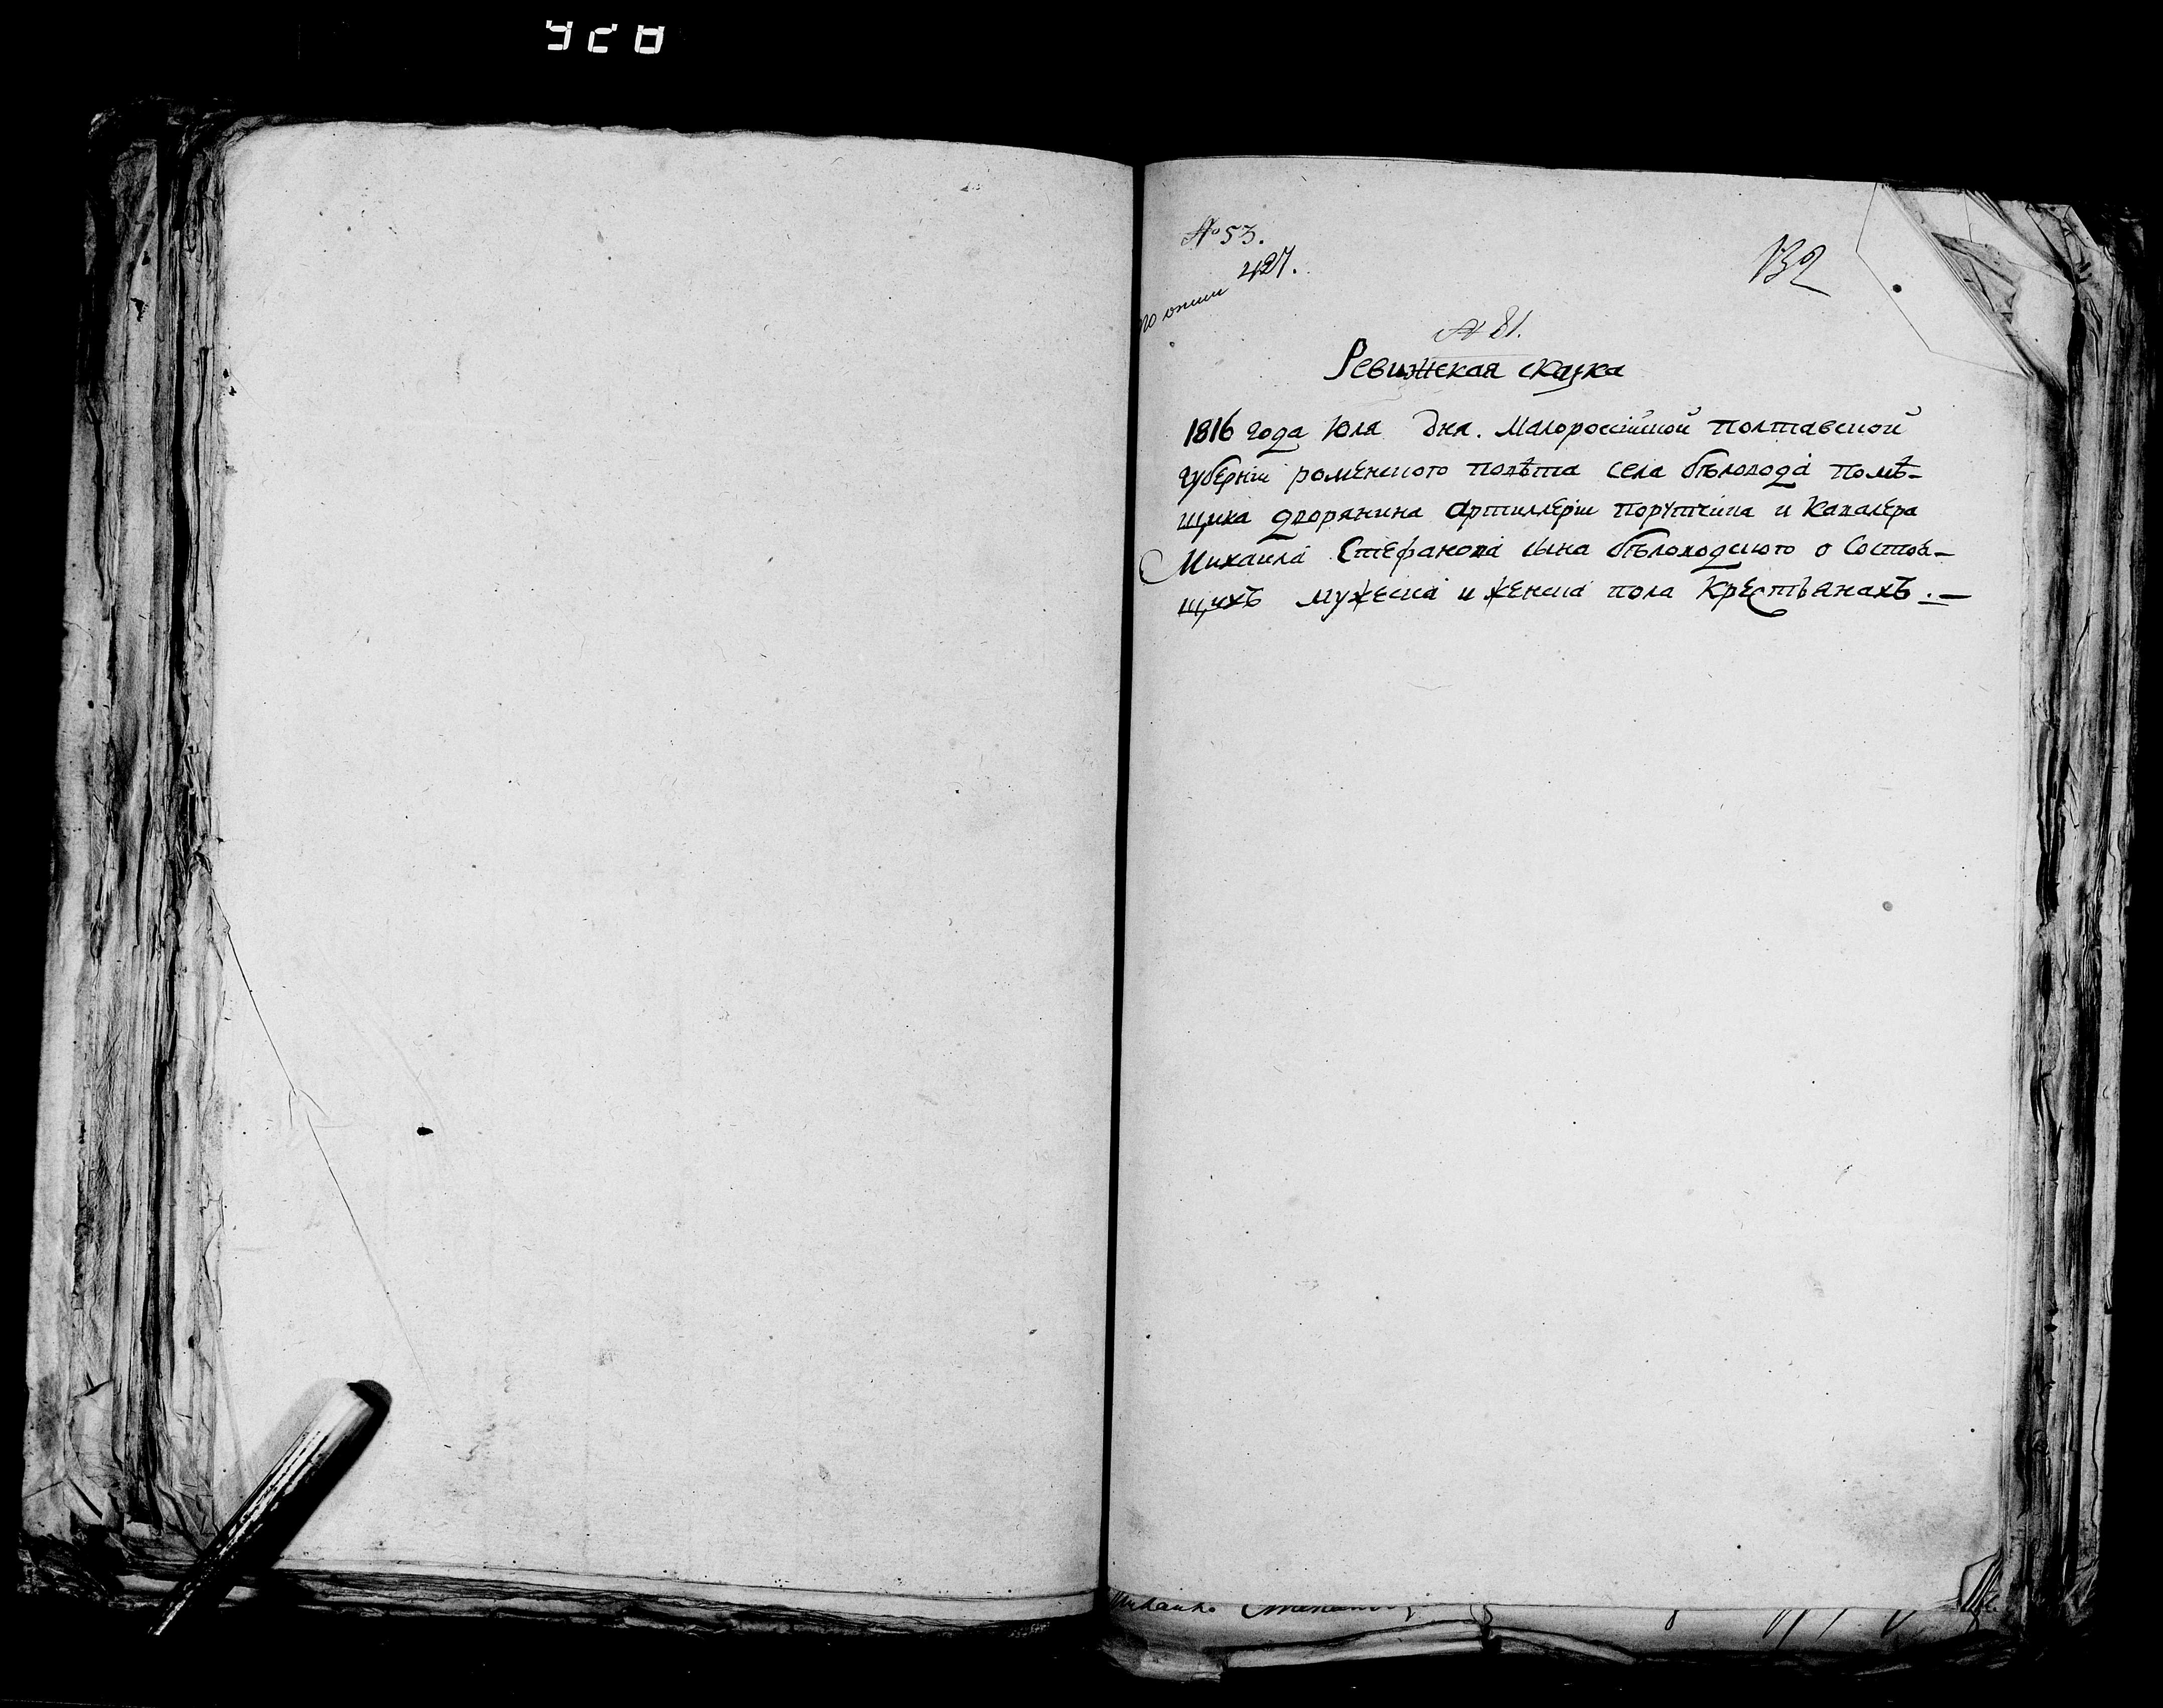 № 53.
427.
по описи
132
№ 81.
Ревижская сказка
1816 года Юля дня. Малоросссійской полтавской
губерніи роменского повѣта села бѣловода помѣ-
щика дворянина Артиллеріи порутчика и Кавалера
Михаила Стефанова сына бѣловодского о Состоя-
щихъ мужеска и женска пола Крестьянахъ . —